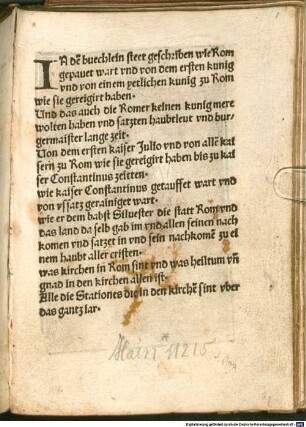 IN dē buechlein steet geschriben wie Rom
gepauet wart vnd von dem ersten kunig
vnd von einem yetlichen kunig zu Rom
wie sie gereigirt haben.
Und das auch die Romer keinen kunig mere
wolten haben vnd satzten haubtleut vnd bur
germaister lange zeit.
Von dem ersten kaiser Julio vnd von allē kai
sern zu Rom wie sie gereigirt haben bis zu kai
ser Constantinus zeitten.
wie kaiser Constantinus getauffet wart vnd
von vssatz gerainiget wart.
wie er dem babst Siluester die statt Rom vnd
das land da selb gab im vnd allen seinen nach
komen vnd satzet in vnd sein nachkomē zu ei
nem haubt aller cristen.
was kirchen in Rom sint vnd was heiltum vñ
gnad in den kirchen allen ist.
Alle die Stationes die in den kirchē sint vber
das gantz iar.
Hain* 11215